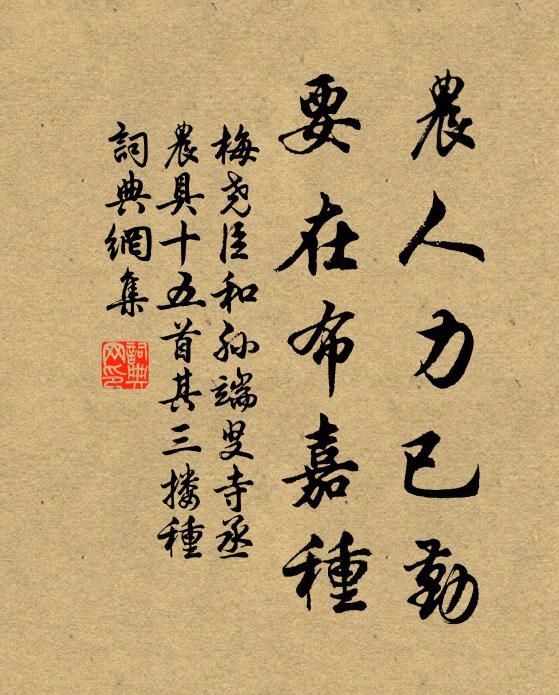 農人力已勤
要在布嘉種
梅堯臣和孙端叟寺丞
農具十五首其三搂種
詞典網集
詞典
网印